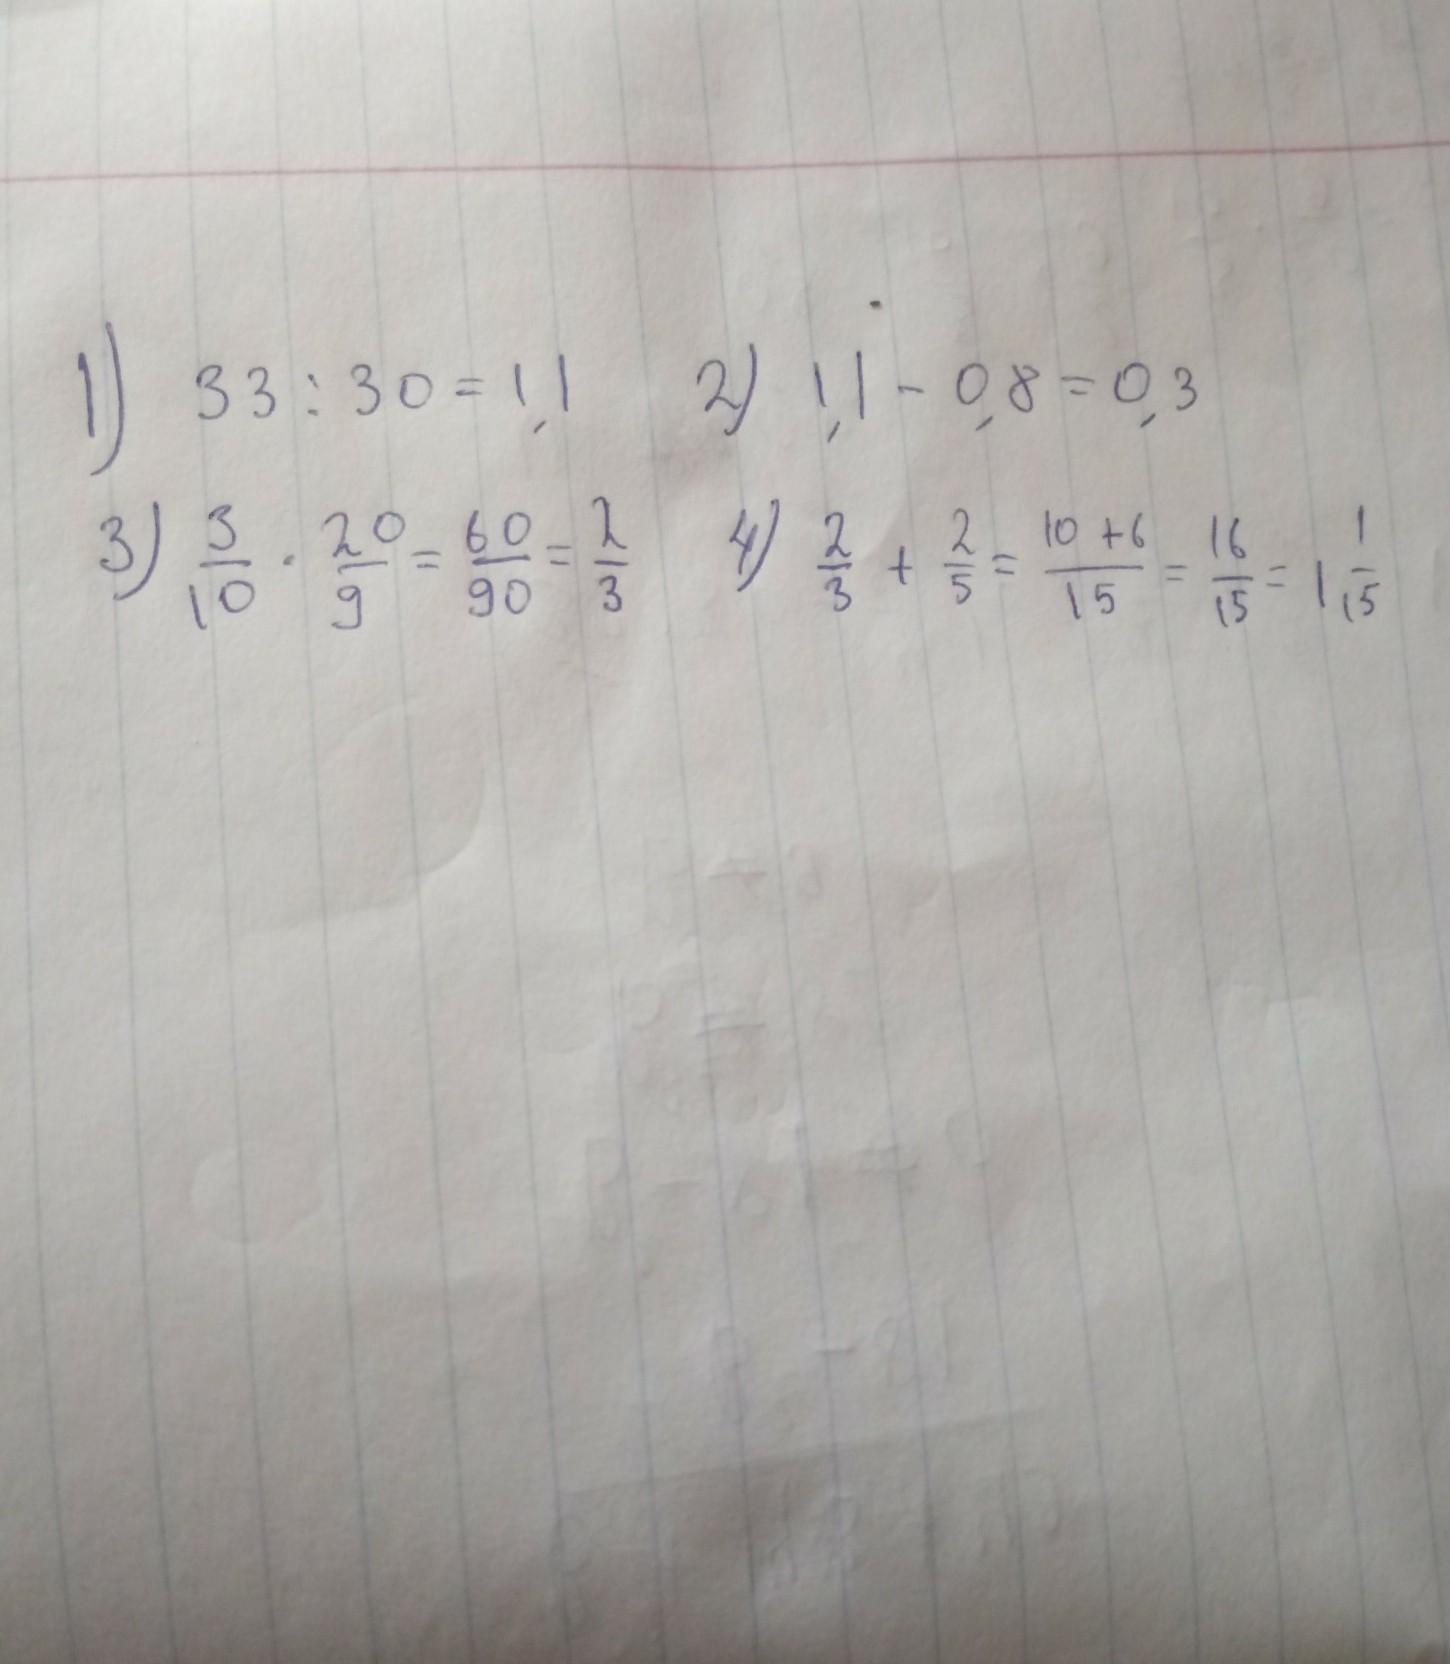 1) 33 : 30 = 1,1 2) 1,1 - 0,8 = 0,3
3) 3/10 · 20/9 = 60/90 = 2/3 4) 2/3 + 2/5 = 10+6/15 = 16/15 = 1 1/15